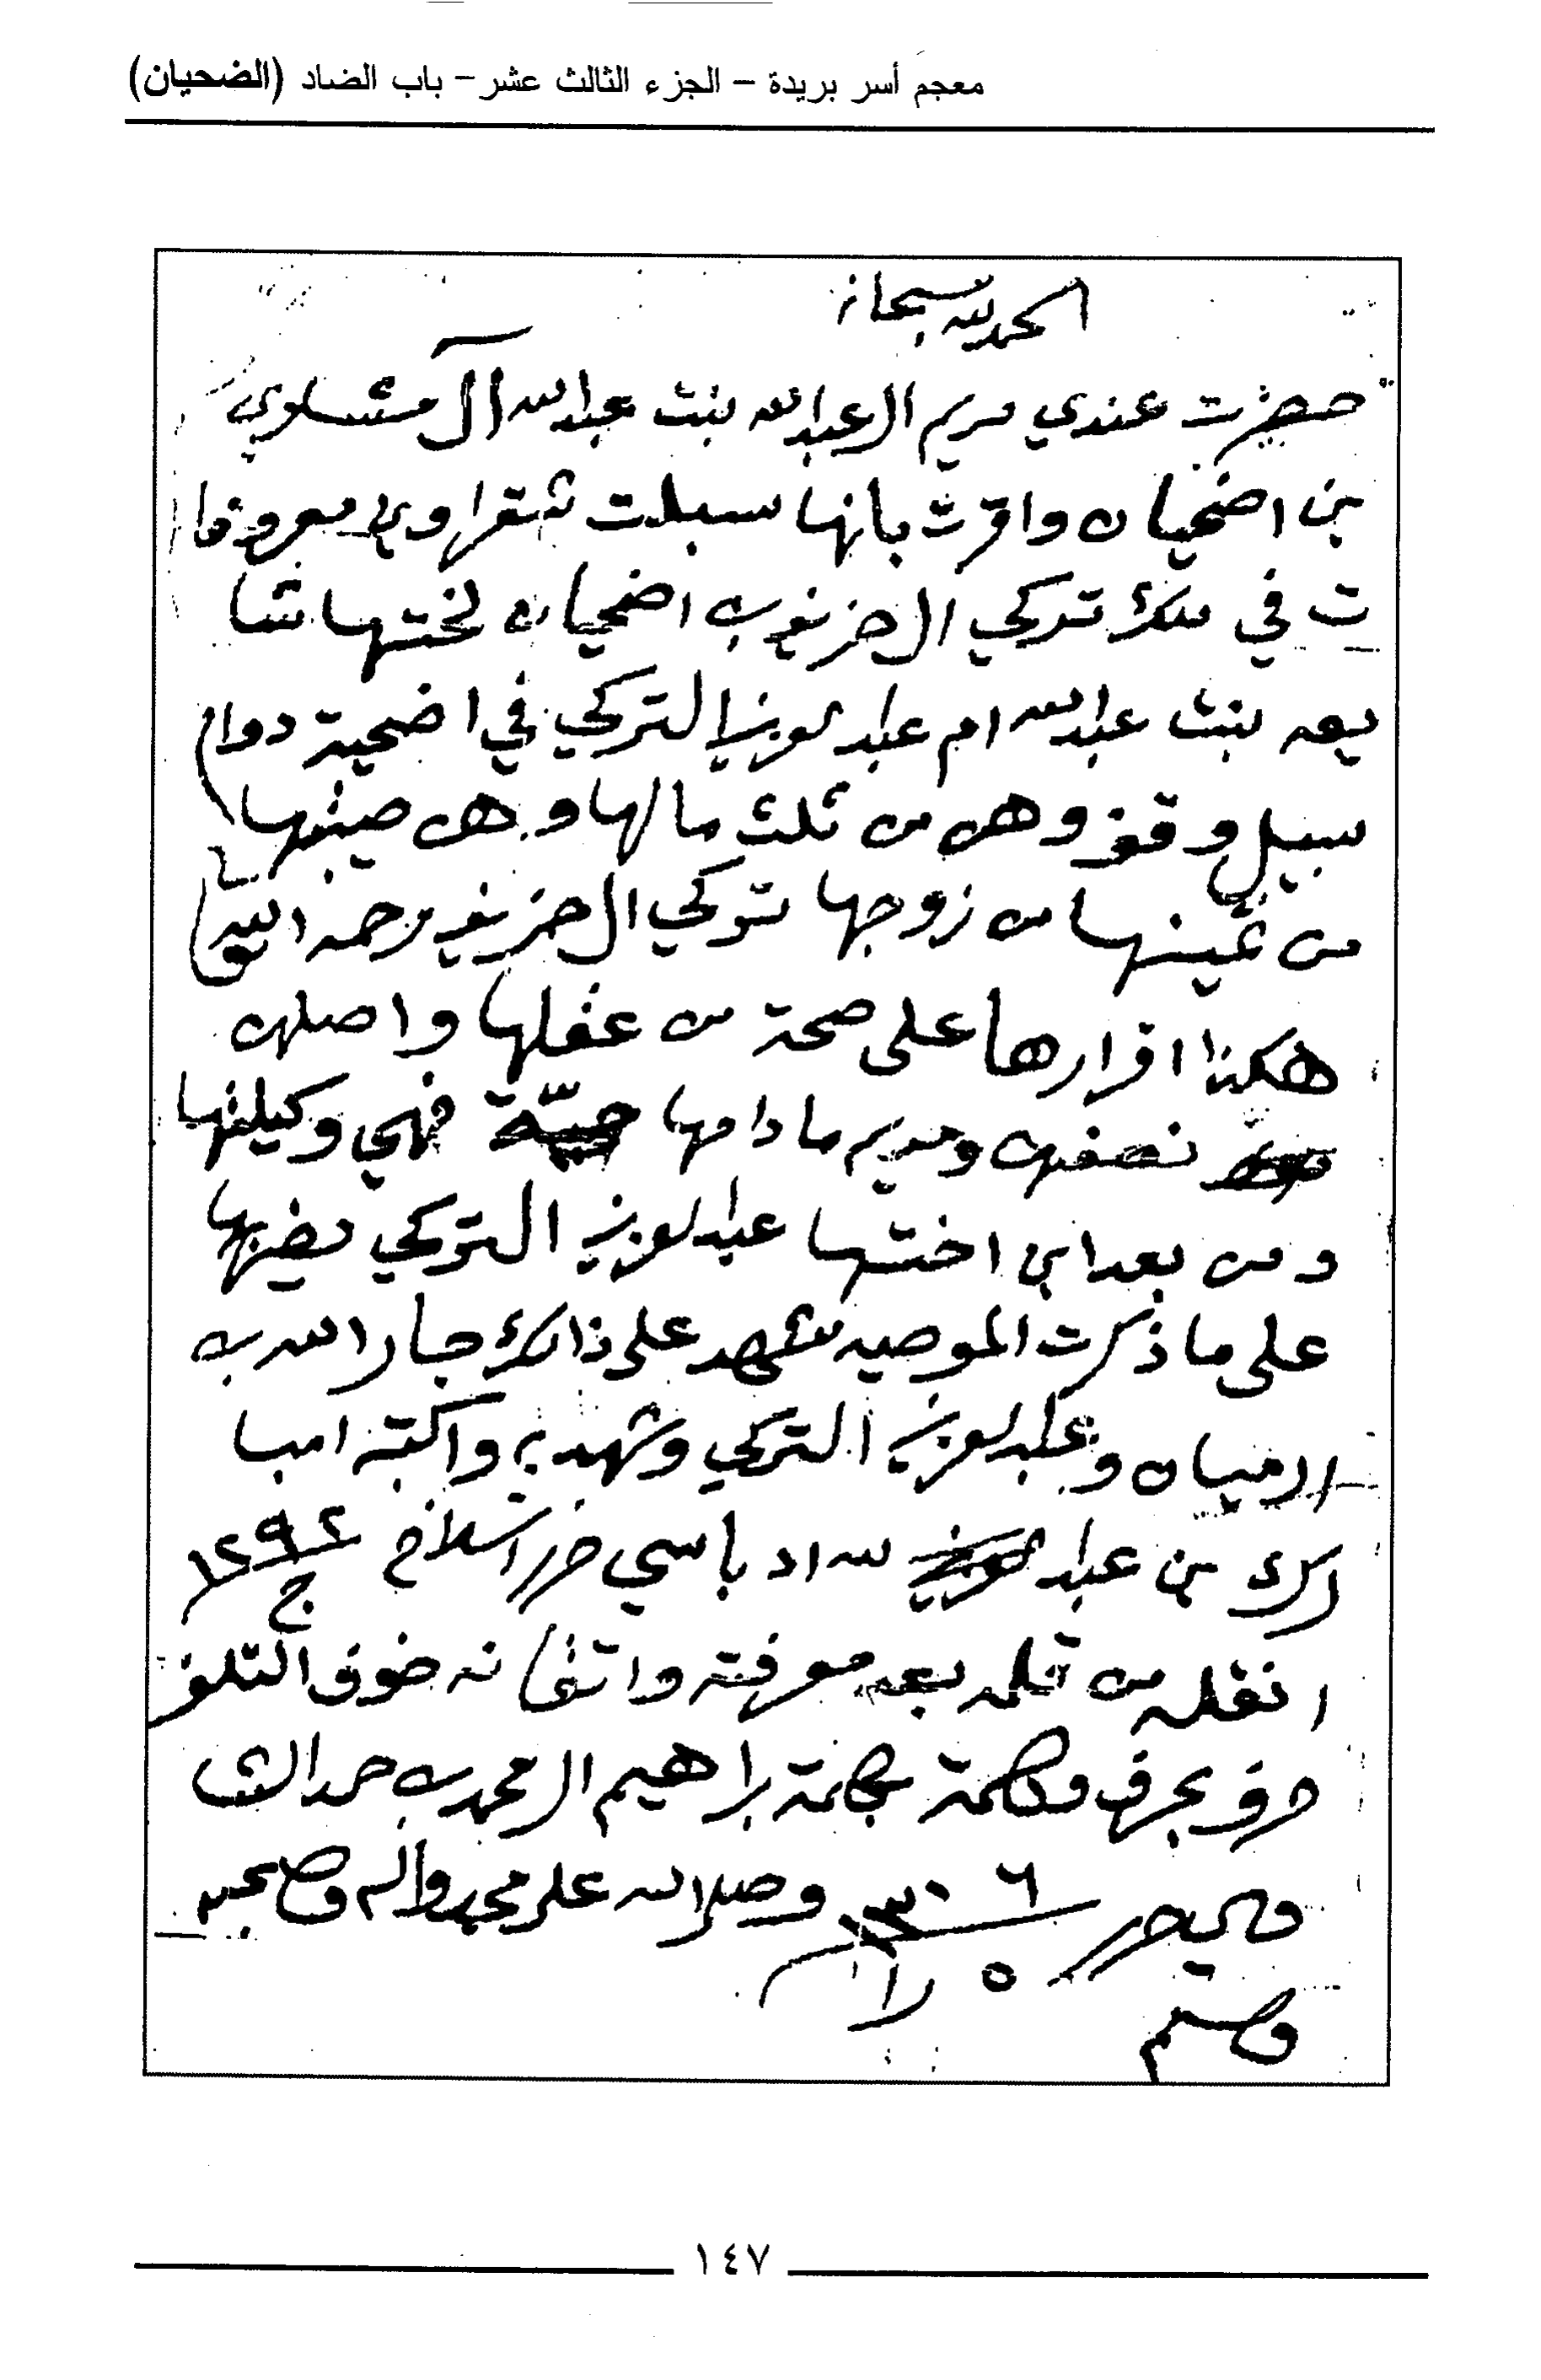 معجم أسر بريدة – الجزء الثالث عشر – باب الضاد (الضحيان)
الحمد لله سبحانه
حضرت عندي مريم العبدالله بنت عبدالله آل مشلوي
بن اضحيان واقرت بانها سبلت شقراوين معروفا
ت في ملك تركي ال حزيفوب اضحيان لختها شا
يعه بنت عبدالله ام عبدلعزيز التركي في اضحية دوام
سبيل وقف وهن من ثلث مالها وهن صيبتها
من ثمينها من زوجها تركي ال رحمه الله
هكذا اقرارها على صحة من عقلها واصلهن
نصفهن ومريم مادامها حيّة فهي وكيلتها
ومن بعد ابن اختها عبدلعزيز التركي يضربها
على ما ذكرت الموصيه شهد على ذالك جارالله بن
ارميان وعبدلعزيز التركي وشهد به واكتبه امبا
رك بن عبد لله حرر ١٢٩٢
ج
انقله من قلمه بعد معرفته واتقانه خوف التلف
حرف بحرف وكلمة بكلمة براهيم ال محمد بن حمد
حرر ٥ ١٣٠٦ وصلا الله على محمد واله وصحبه
وسلم
١٤٧